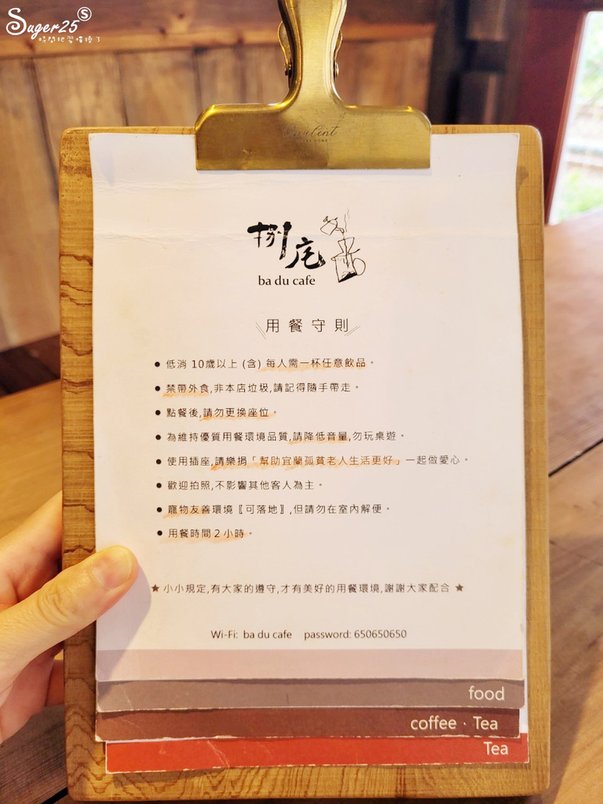 Suger25 S
時間把習慣換了
捌庒
ba du cafe
用餐守則
● 低消 10歲以上 (含) 每人需一杯任意飲品。
● 禁帶外食,非本店垃圾,請記得隨手帶走。
● 點餐後,請勿更換座位。
● 為維持優質用餐環境品質,請降低音量,勿玩桌遊。
● 使用插座,請樂捐「幫助宜蘭孤貧老人生活更好」一起做愛心。
● 歡迎拍照,不影響其他客人為主。
● 寵物友善環境〖可落地〗,但請勿在室內解便。
● 用餐時間2小時。
★小小規定,有大家的遵守,才有美好的用餐環境,謝謝大家配合 ★
Wi-Fi: ba du cafe password: 650650650
food
coffee · Tea
Tea